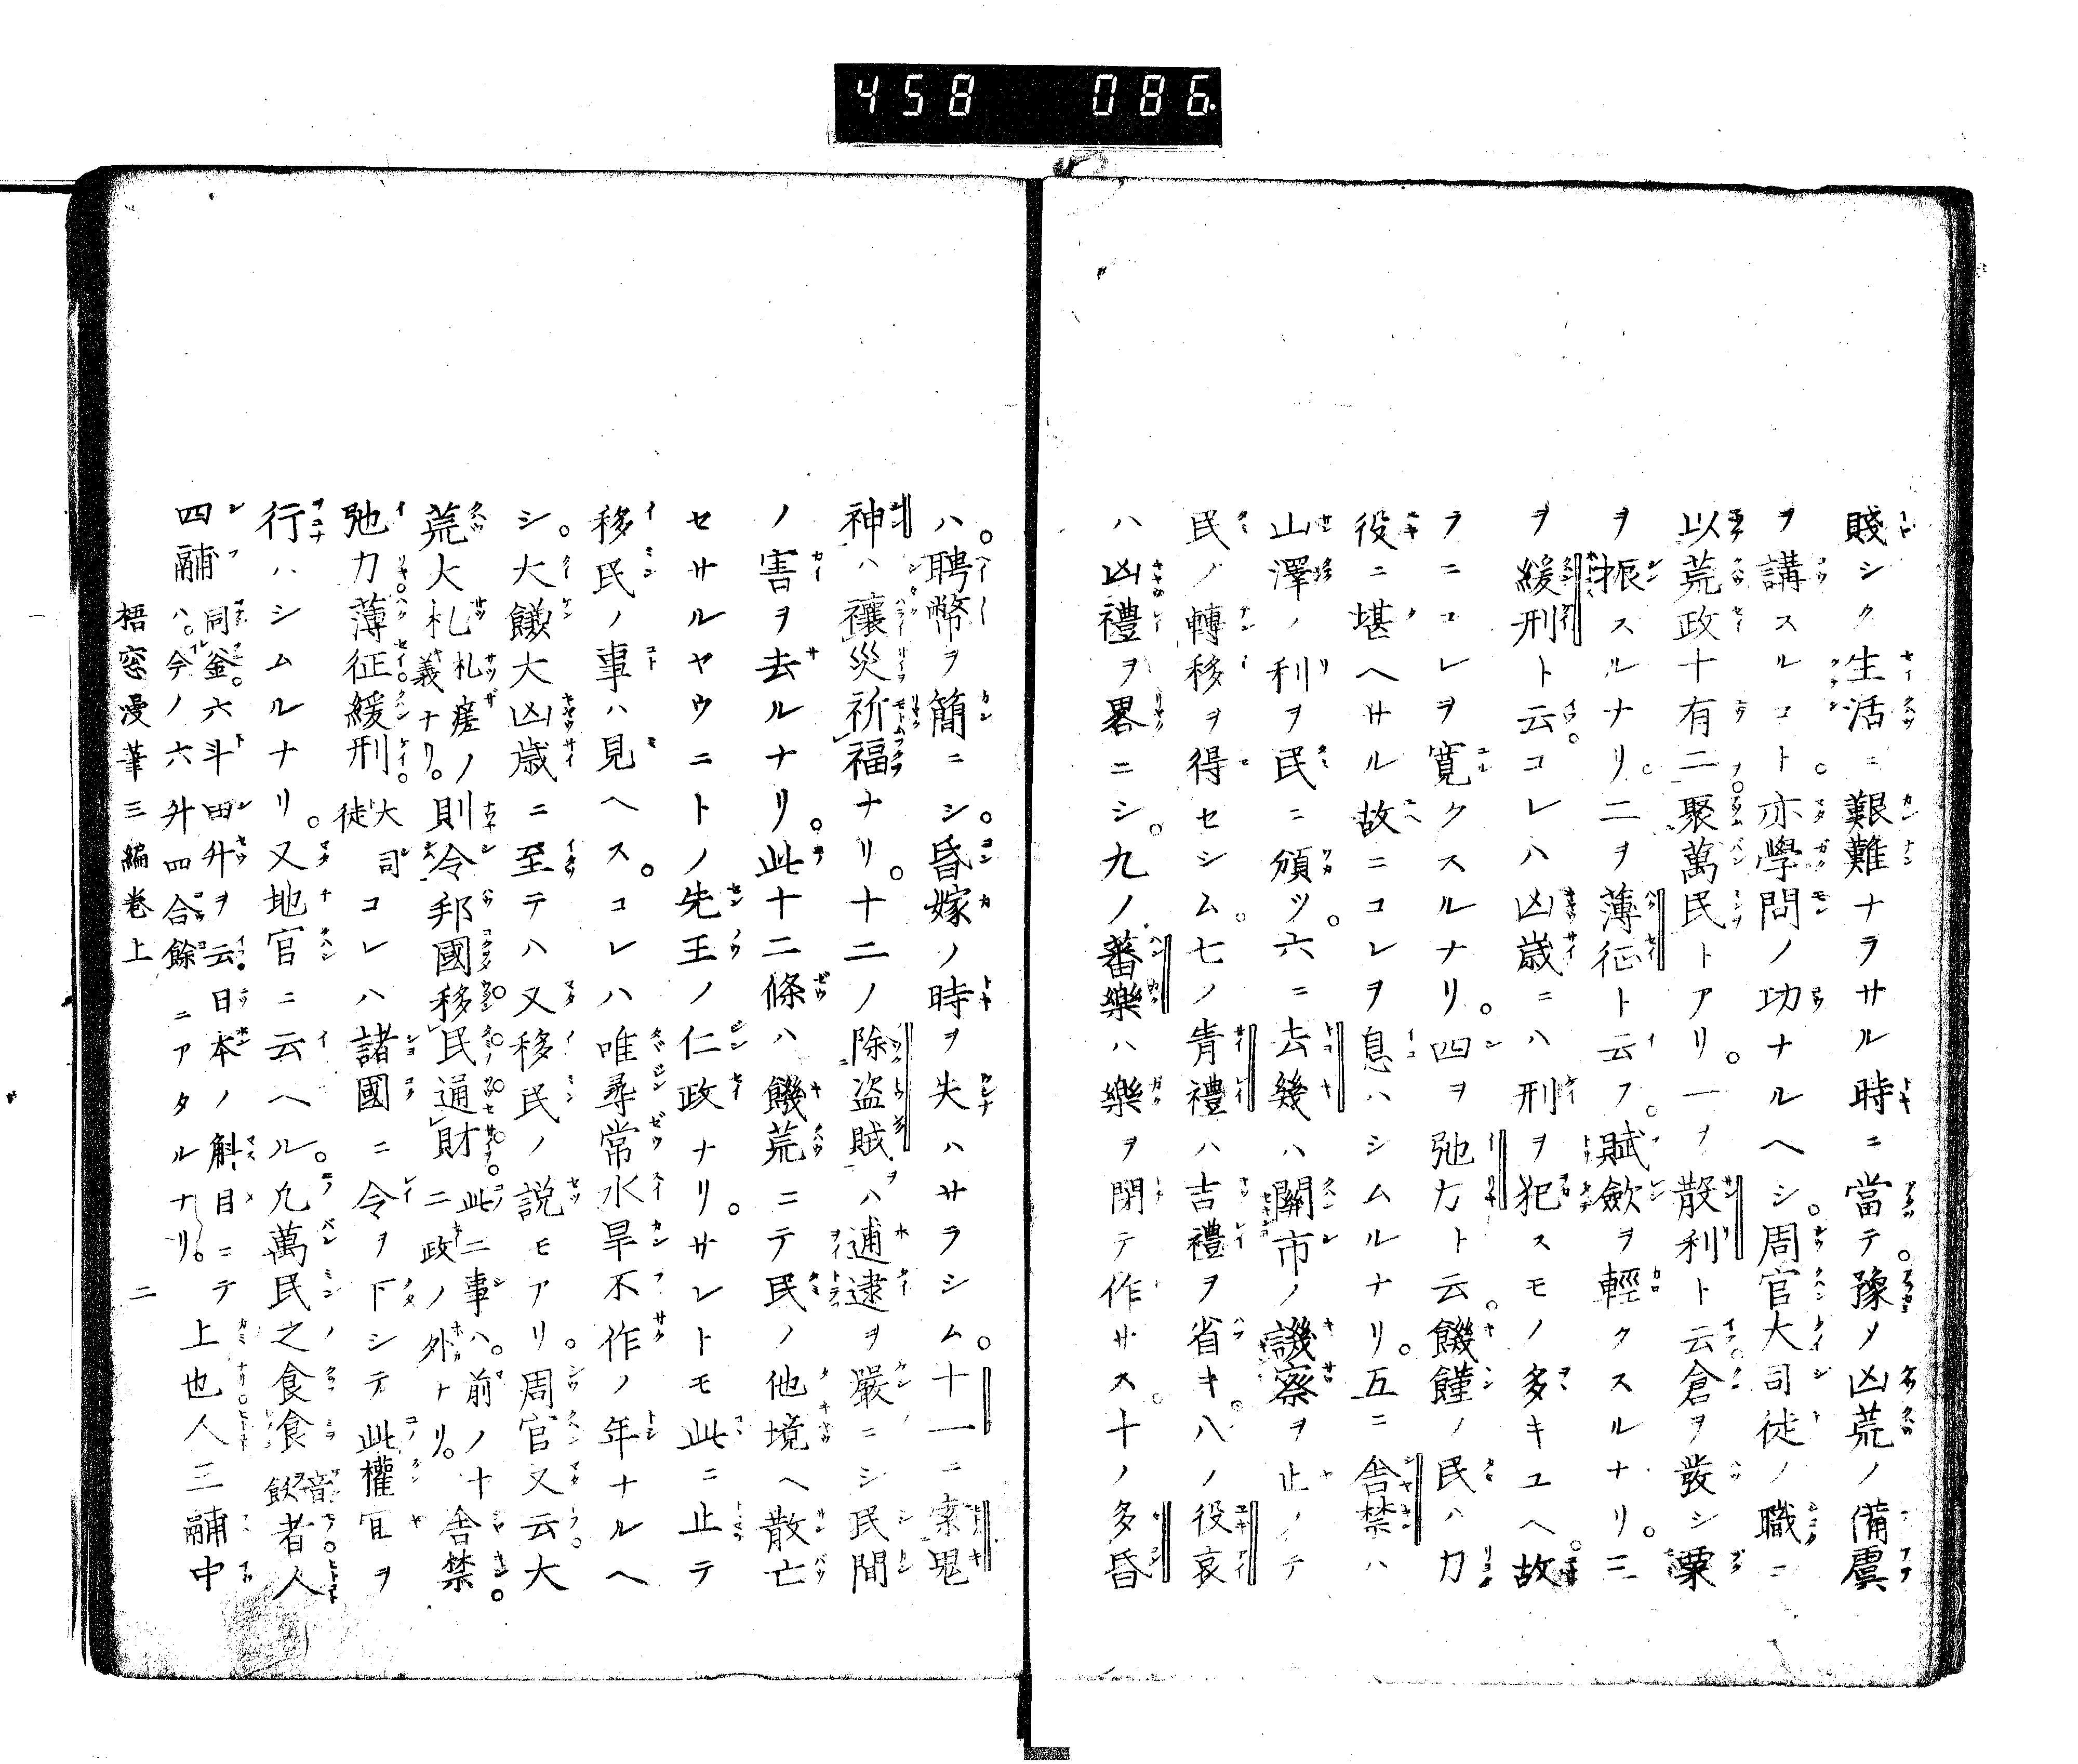 458 086
賤シク生活ニ艱難ナラサル時ニ當テ豫メ凶荒ノ備虞
ヲ講スルコト亦學問ノ功ナルヘシ。周官大司徒ノ職ニ
以荒政十有二聚萬民トアリ。一ヲ散利ト云倉ヲ發シ粟
ヲ振スルナリ。二ヲ薄征ト云フ。賦歛ヲ輕クスルナリ。三
ヲ緩刑ト云。コレハ凶歳ニハ刑ヲ犯スモノ多キユヘ故
ラニコレヲ寛クスルナリ。四ヲ弛力ト云。饑饉ノ民ハ力
役ニ堪ヘサル故ニコレヲ息ハシムルナリ。五ニ舎禁ハ
山澤ノ利ヲ民ニ頒ツ。六ニ去幾ハ關市ノ譏察ヲ止ノテ
民ノ轉移ヲ得セシム。七ノ眚禮ハ吉禮ヲ省キ。八ノ役哀
ハ凶禮ヲ畧ニシ。九ノ蕃樂ハ樂ヲ閉テ作サス。十ノ多昏
ハ。聘幣ヲ簡ニシ。昏嫁ノ時ヲ失ハサラシム。十一ニ索鬼
神ハ禳災祈福ナリ。十二ノ除盗賊ハ逋逮ヲ嚴ニシ民間
ノ害ヲ去ルナリ。此十二條ハ饑荒ニテ民ノ他境ヘ散亡
セサルヤウニトノ先王ノ仁政ナリ。サレトモ此ニ止テ
移民ノ事ハ見ヘス。コレハ唯尋常水旱不作ノ年ナルヘ
シ。大饑大凶歳ニ至テハ又移民ノ説モアリ。周官又云大
荒大札札瘥ノ義ナリ。則令邦國移民通財此二事ハ。前ノ十二政ノ外ナリ。舎禁
弛力薄征緩刑。大司徒コレハ諸國ニ令ヲ下シテ此權宜ヲ
行ハシムルナリ。又地官ニ云ヘル。凡萬民之食食音飲者人
四鬴同釜。六斗四升ヲ云。日本ノ斛目ニテハ。今ノ六升四合餘ニアタルナリ。上也人三鬴中
梧窓漫筆三編巻上 二